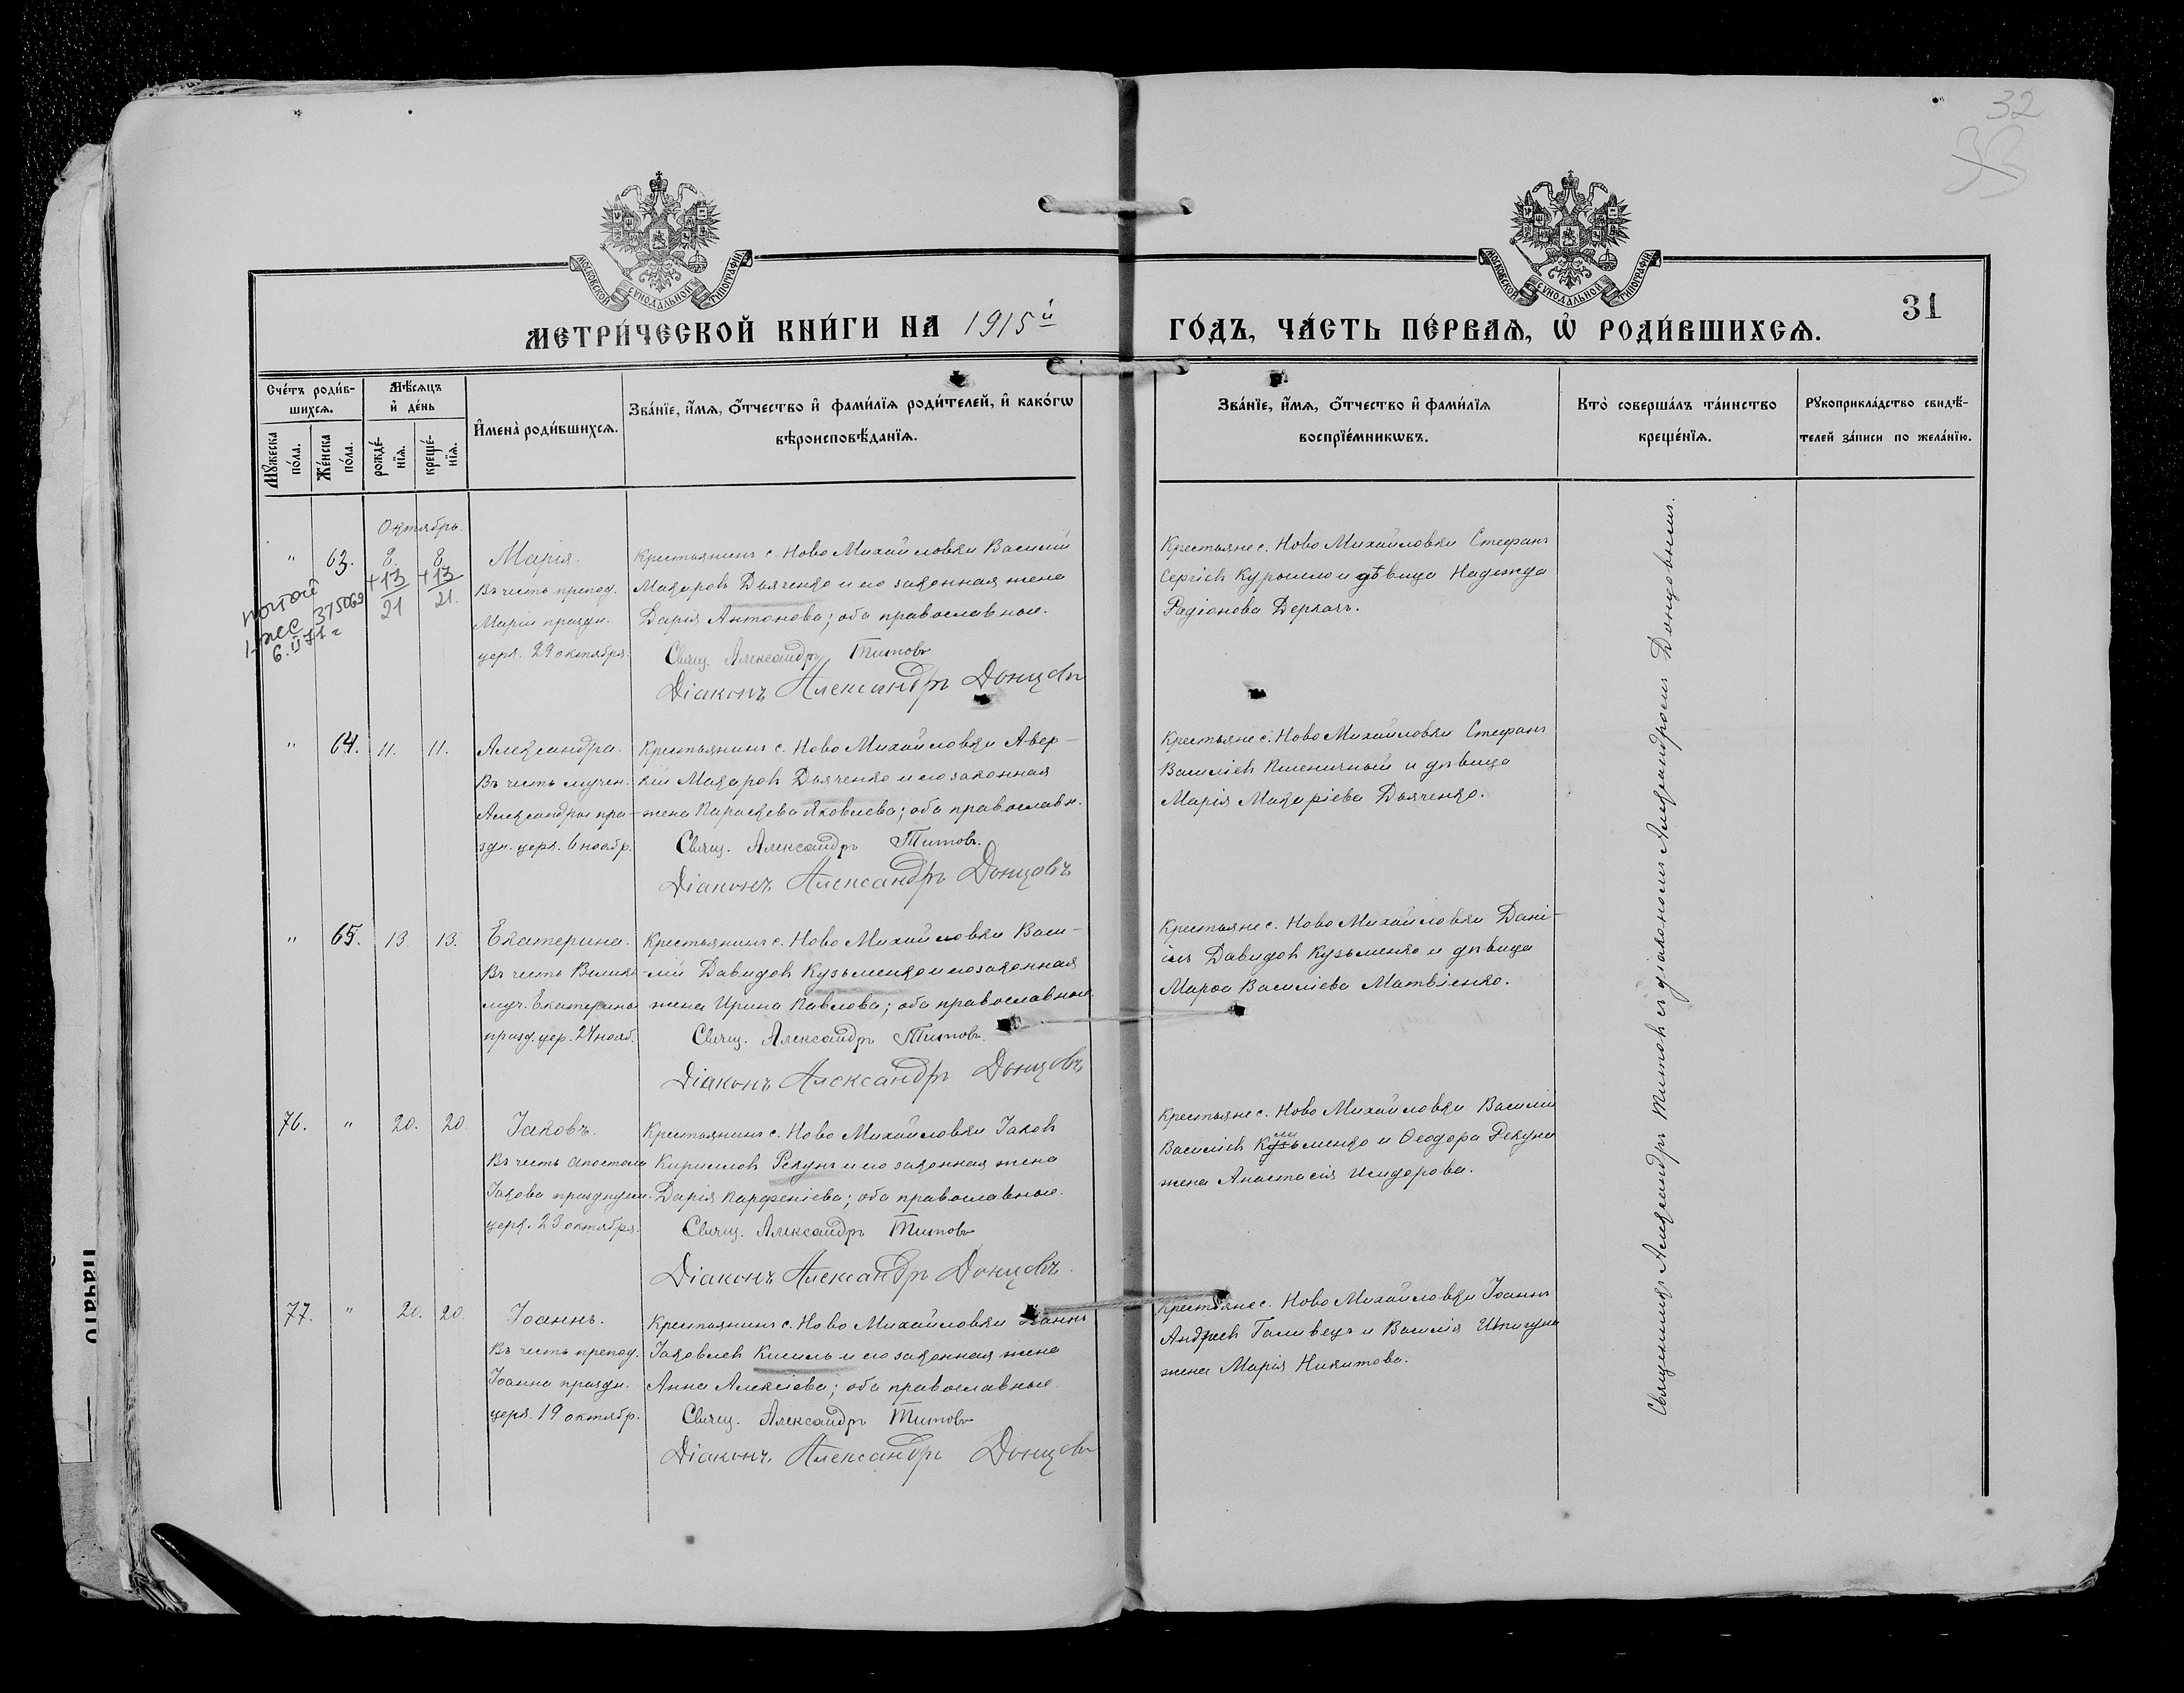 32
33
МОСКОВСКОЙ СѴНОДАЛЬНОЙ ТИПОГРАФІИ
МОСКОВСКОЙ СѴНОДАЛЬНОЙ ТИПОГРАФІИ
31
МЕТРИ́ЧЕСКОЙ КНИ́ГИ НА 1915й ГО́ДЪ, ЧА́СТЬ ПЕ́РВАѦ, Ѡ҆ РОДИ́ВШИХСѦ.
Сче́тъ роди́в-
шихсѧ.
Мꙋ́жеска по́ла.
Же́нска по́ла.
Мѣ́сѧцъ
и҆ де́нь
рожде́-
нїѧ.
креще́-
нїѧ.
И҆мена̀ роди́вшихсѧ.
Зва́нїе, и҆́мѧ, ѻ҆́тчество и҆ фами́лїѧ роди́телей, и҆ како́гѡ
вѣроисповѣ́данїѧ.
Зва́нїе, и҆́мѧ, ѻ҆́тчество и҆ фами́лїѧ
воспрїе́мникѡвъ.
Кто̀ соверша́лъ та́инство
креще́нїѧ.
Рꙋкоприкла́дство свидѣ́-
телей за́писи по жела́нїю.
Октябрь.
" 63. 8. 8. Марія.
+13 +13
21 21.
повтой
1-жес 375069
6.II 71г
Въ честь препод.
Маріи праздн.
церк. 29 октября.
Крестьянинъ с. Ново Михайловки Василій
Макаровъ Дьяченко и его законная жена
Дарія Антонова; оба православные.
Свящ. Александръ Титовъ
Діаконъ Александръ Донцовъ
Крестьяне с. Ново Михайловки Стефанъ
Сергіевъ Курочило и дѣвица Надежда
Радіонова Деркачъ.
" 64. 11. 11. Александра.
Въ честь мучен.
Александры пра-
здн. церк. 6 ноябр.
Крестьянинъ с. Ново Михайловки Авер-
кій Макаровъ Дьяченко и его законная
жена Параскева Яковлева; оба православн.
Свящ. Александръ Титовъ.
Діаконъ Александръ Донцовъ
Крестьяне с. Ново Михайловки Стефанъ
Василіевъ Пшеничный и дѣвица
Марія Макаріева Дьяченко.
" 65. 13. 13. Екатерина.
Въ честь Велико-
муч. Екатерины
празд. цер. 24 нояб.
Крестьянинъ с. Ново Михайловки Васи-
лій Давидовъ Кузьменко и его законная
жена Ирина Павлова; оба православные.
Свящ. Александръ Титовъ.
Діаконъ Александръ Донцовъ
Крестьяне с. Ново Михайловки Дані-
илъ Давидовъ Кузьменко и дѣвица
Марѳа Василіева Матвіенко.
76. " 20. 20. Іаковъ.
Въ честь Апостола
Іакова празднуем.
церк. 23 октября.
Крестьянинъ с. Ново Михайловки Іаковъ
Кирилловъ Рекунъ и его законная жена
Дарія Парѳеніева; оба православные.
Свящ. Александръ Титовъ
Діаконъ Александръ Донцовъ.
Крестьяне с. Ново Михайловки Василій
Василіевъ Кузьменко и Ѳеодора Рекуна
жена Анастасія Исидорова.
77. " 20. 20. Іоаннъ.
Въ честь препод.
Іоанна праздн.
церк. 19 октябр.
Крестьянинъ с. Ново Михайловки Іоаннъ
Іаковлевъ Кисиль и его законная жена
Анна Алексіева; оба православные.
Свящ. Александръ Титовъ
Діаконъ Александръ Донцовъ
Крестьяне с. Ново Михайловки Іоаннъ
Андреевъ Галивецъ и Василія Шпигуна
жена Марія Никитова.
Священникъ Александръ Титовъ съ діакономъ Александромъ Донцовымъ.
Начато